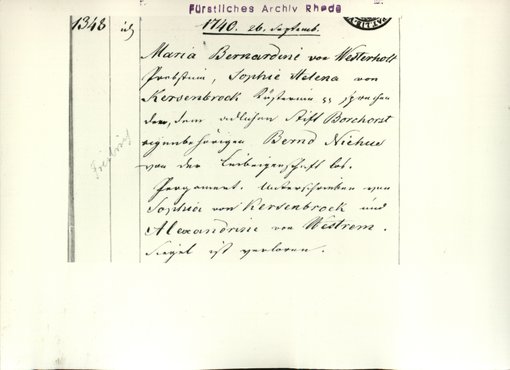 Fürstliches Archiv Rhede
1348
1740. 26. Septemb.
Maria Bernardine von Westerholt
Probstein, Sophie Helena von
Kersenbrock Küsterin sprechen
den, dem adlichen Stift Borchorst
eigenbehörigen Bernd Niehus
von der Leibeigenschaft los.
Pergament. Unterschrieben von
Sophia von Kersenbrock und
Alexandrine von Westrem.
Siegel ist verloren.